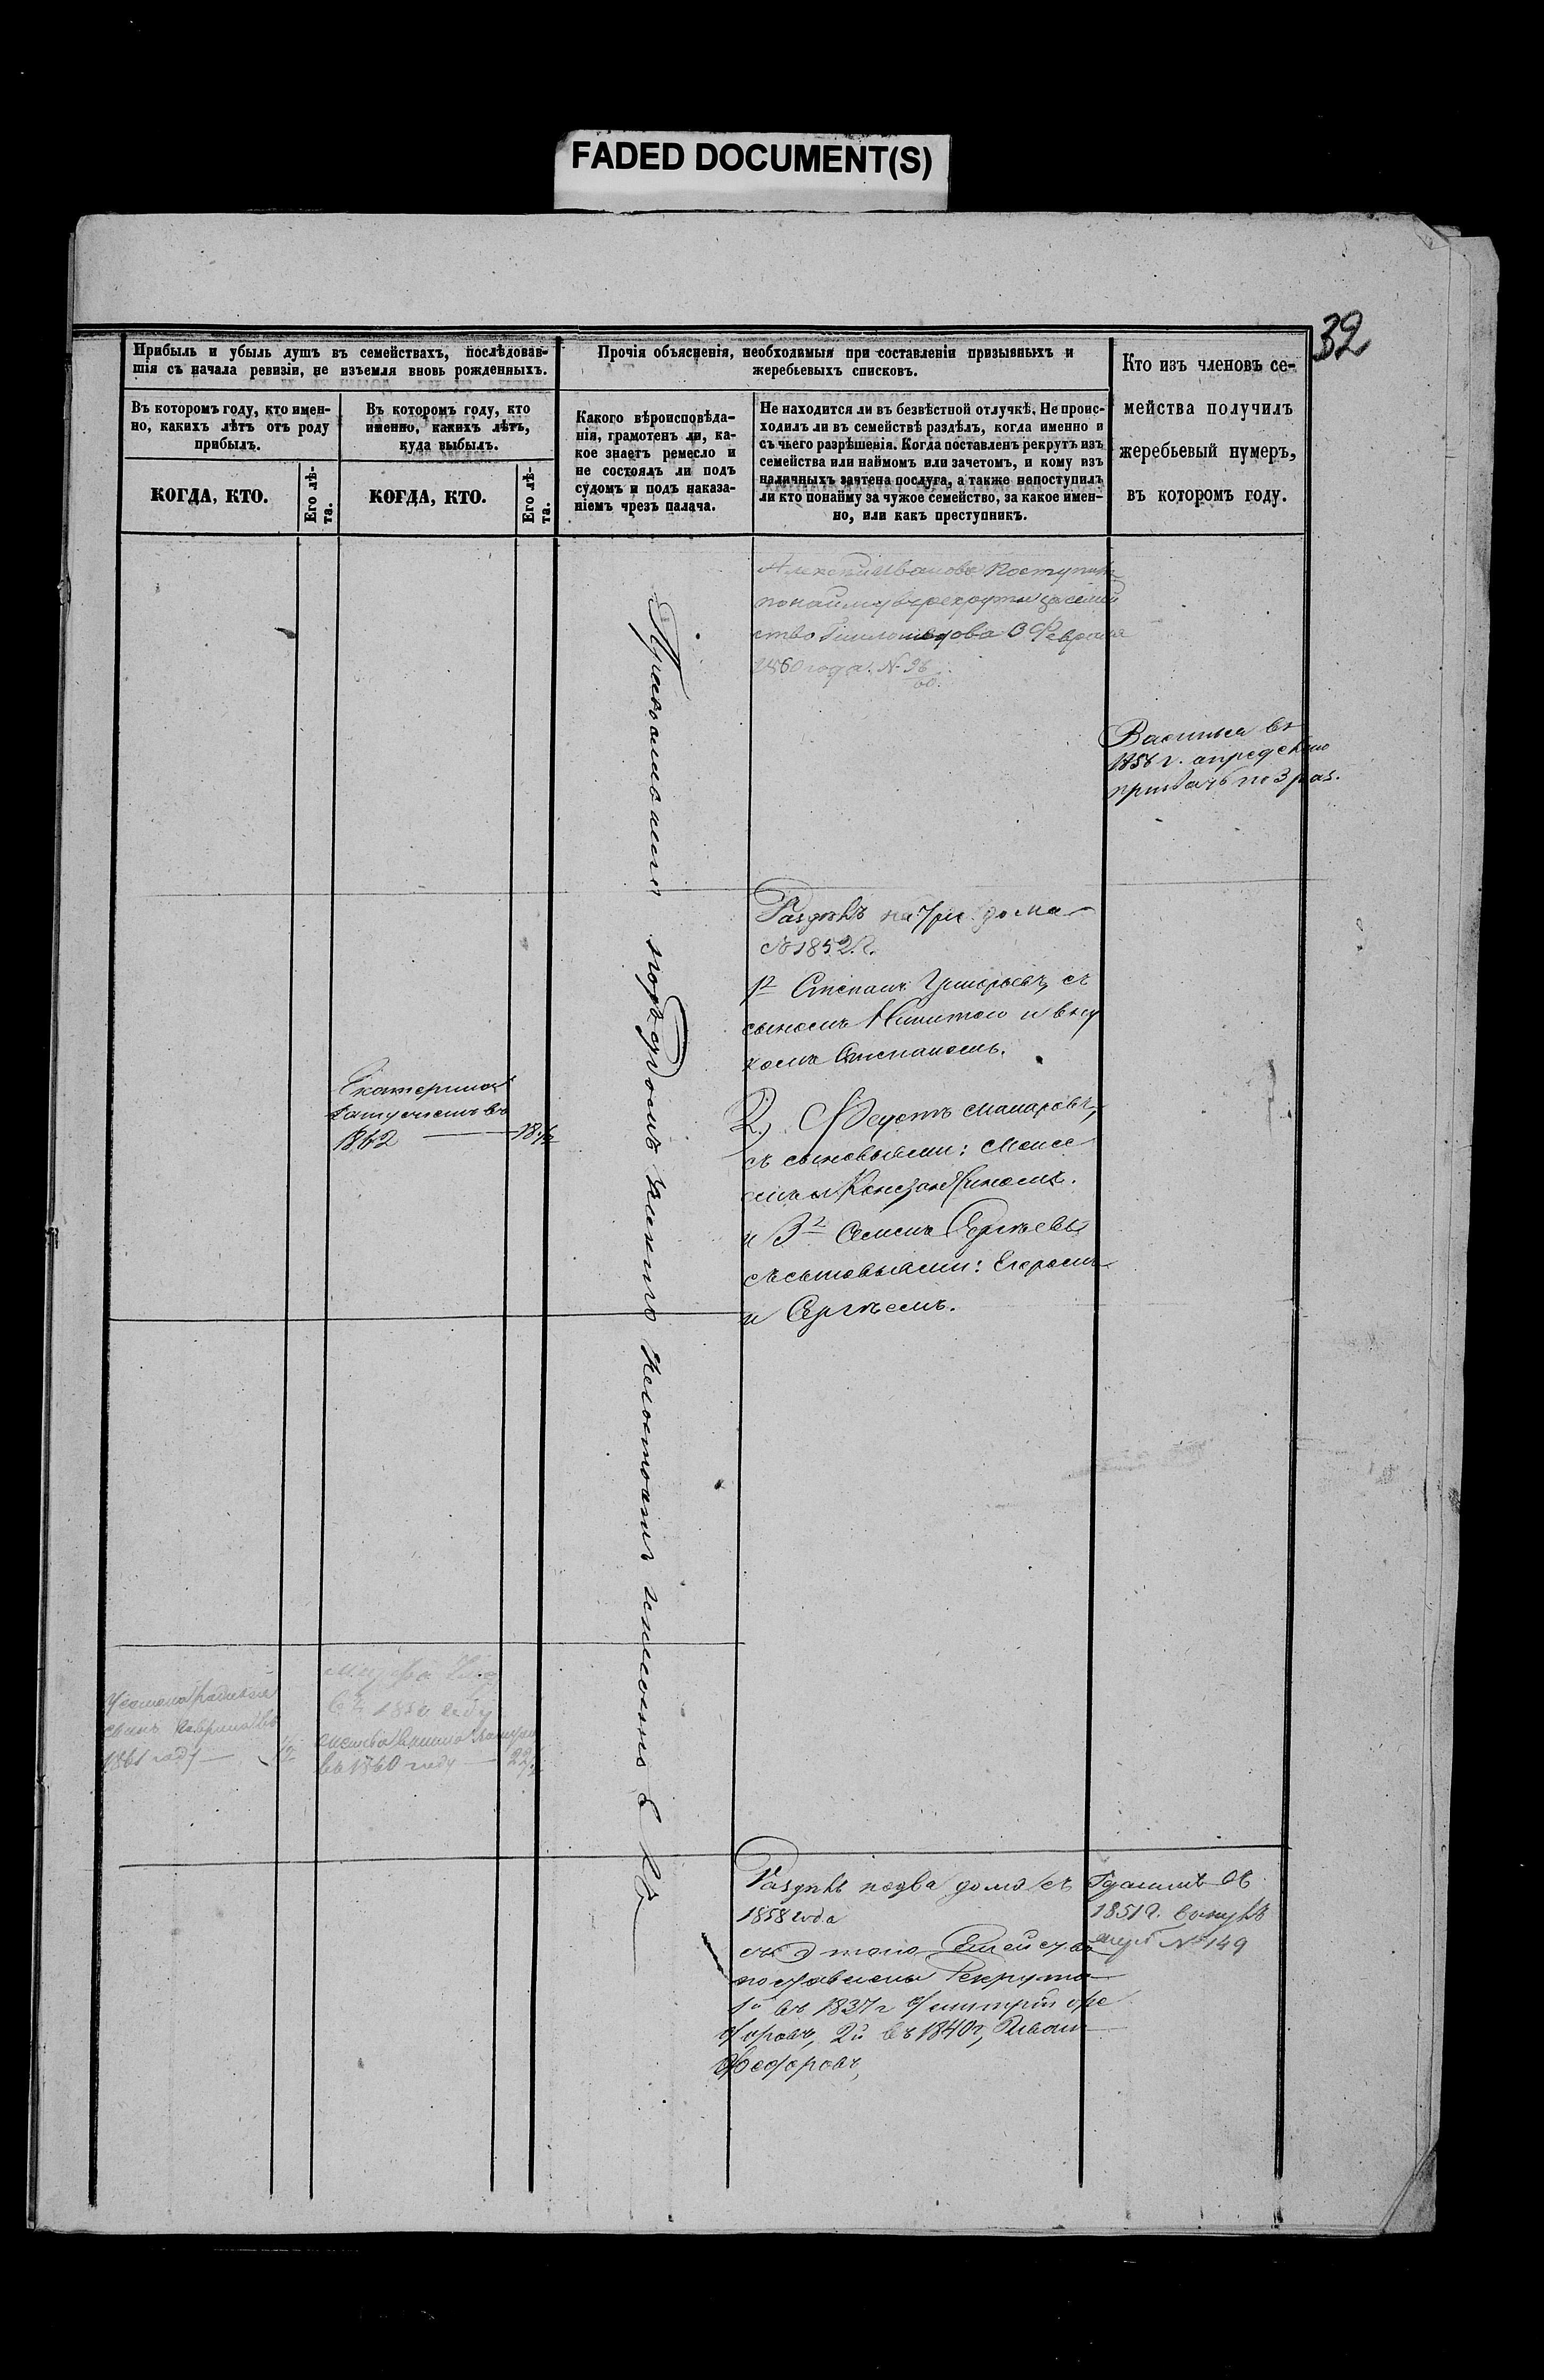 FADED DOCUMENT(S)
32
Прибыль и убыль душъ въ семействахъ, послѣдовав-
шія съ начала ревизіи, не изъемля вновь рожденныхъ.
Прочія объясненія, необходимыя при составленіи призывныхъ и
жеребьевыхъ списковъ.
Кто изъ членовъ се-
мейства получилъ
жеребьевый нумеръ,
въ которомъ году.
Въ которомъ году, кто имен-
но, какихъ лѣтъ отъ роду
прибылъ.
Въ которомъ году, кто
именно, какихъ лѣтъ,
куда выбылъ.
Какого вѣроисповѣда-
нія, грамотенъ ли, ка-
кое знаетъ ремесло и
не состоялъ ли подъ
судомъ и подъ наказа-
ніемъ чрезъ палача.
Не находится ли въ безвѣстной отлучкѣ. Не проис-
ходилъ ли въ семействѣ раздѣлъ, когда именно и
съ чьего разрѣшенія. Когда поставленъ рекрутъ изъ
семейства или наймомъ или зачетомъ, и кому изъ
наличныхъ зачтена послуга, а также непоступилъ
ли кто понайму за чужое семейство, за какое имен-
но, или какъ преступникъ.
КОГДА, КТО.
Его лѣ-
та.
КОГДА, КТО.
Его лѣ-
та.
Иванова поступилъ
понайму в рекруты за семей
ство 3 Февраля
1860 года. N. 96
60.
Василья въ
1856 г.
по 3 раз.
Раздѣлъ на три дома
съ 1852. г.
1й Степанъ Григорьевъ, съ
сыномъ Никитою и вну
комъ Степаномъ.
Екатерина
замужемъ въ
1862 18 1/2
2.) Федотъ Макаровъ,
съ сыновьями: Моисе
емъ и Константиномъ.
и 3й Семенъ Сергѣевъ
съ сыновьями: Егоромъ
и Сергѣемъ.
Православнаго подъ судомъ никто несостоялъ
сынъ
1861 году 1/2
въ 185 году
въ 1860 году 22
Раздѣлъ на два дома съ
1858 года
съ этого Семейства
поставлены Рекрута
1й въ 1837 г Дмитрій Фе
доровъ, 2й въ 1840 г, Иванъ
Федоровъ,
Даніилъ въ
1851 г.
№ 149